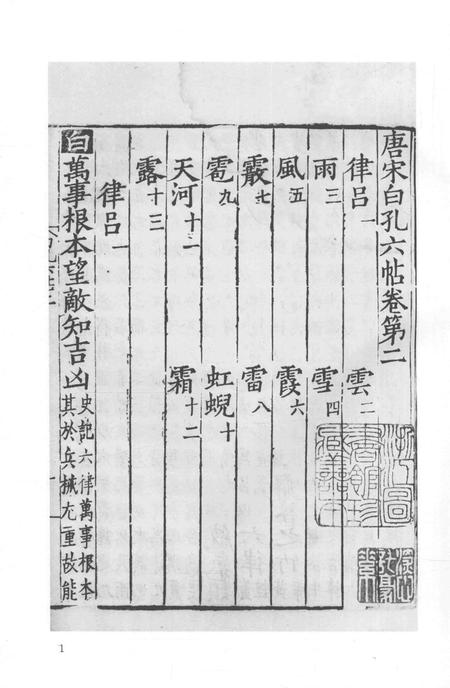 唐宋白孔六帖卷第二
律呂一 雲二
雨三 雪四
風五 霞六
霰七 雷八
雹九 虹蜺十
天河十一 霜十二
露十三
律呂
白 萬事根本望敵知吉凶 史記六律萬事根本
其於兵械尤重故能
浙江圖書館珍藏善本
1